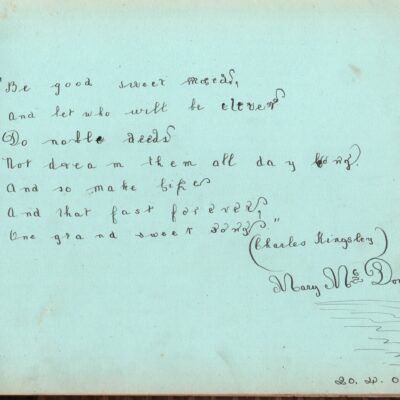 "Be good sweet maid,
and let who will be clever
Do noble deeds
Not dream them all day long.
And so make life
And that fast forever,
One grand sweet song"
(Charles Kingsley)
Mary Mc Don
20.